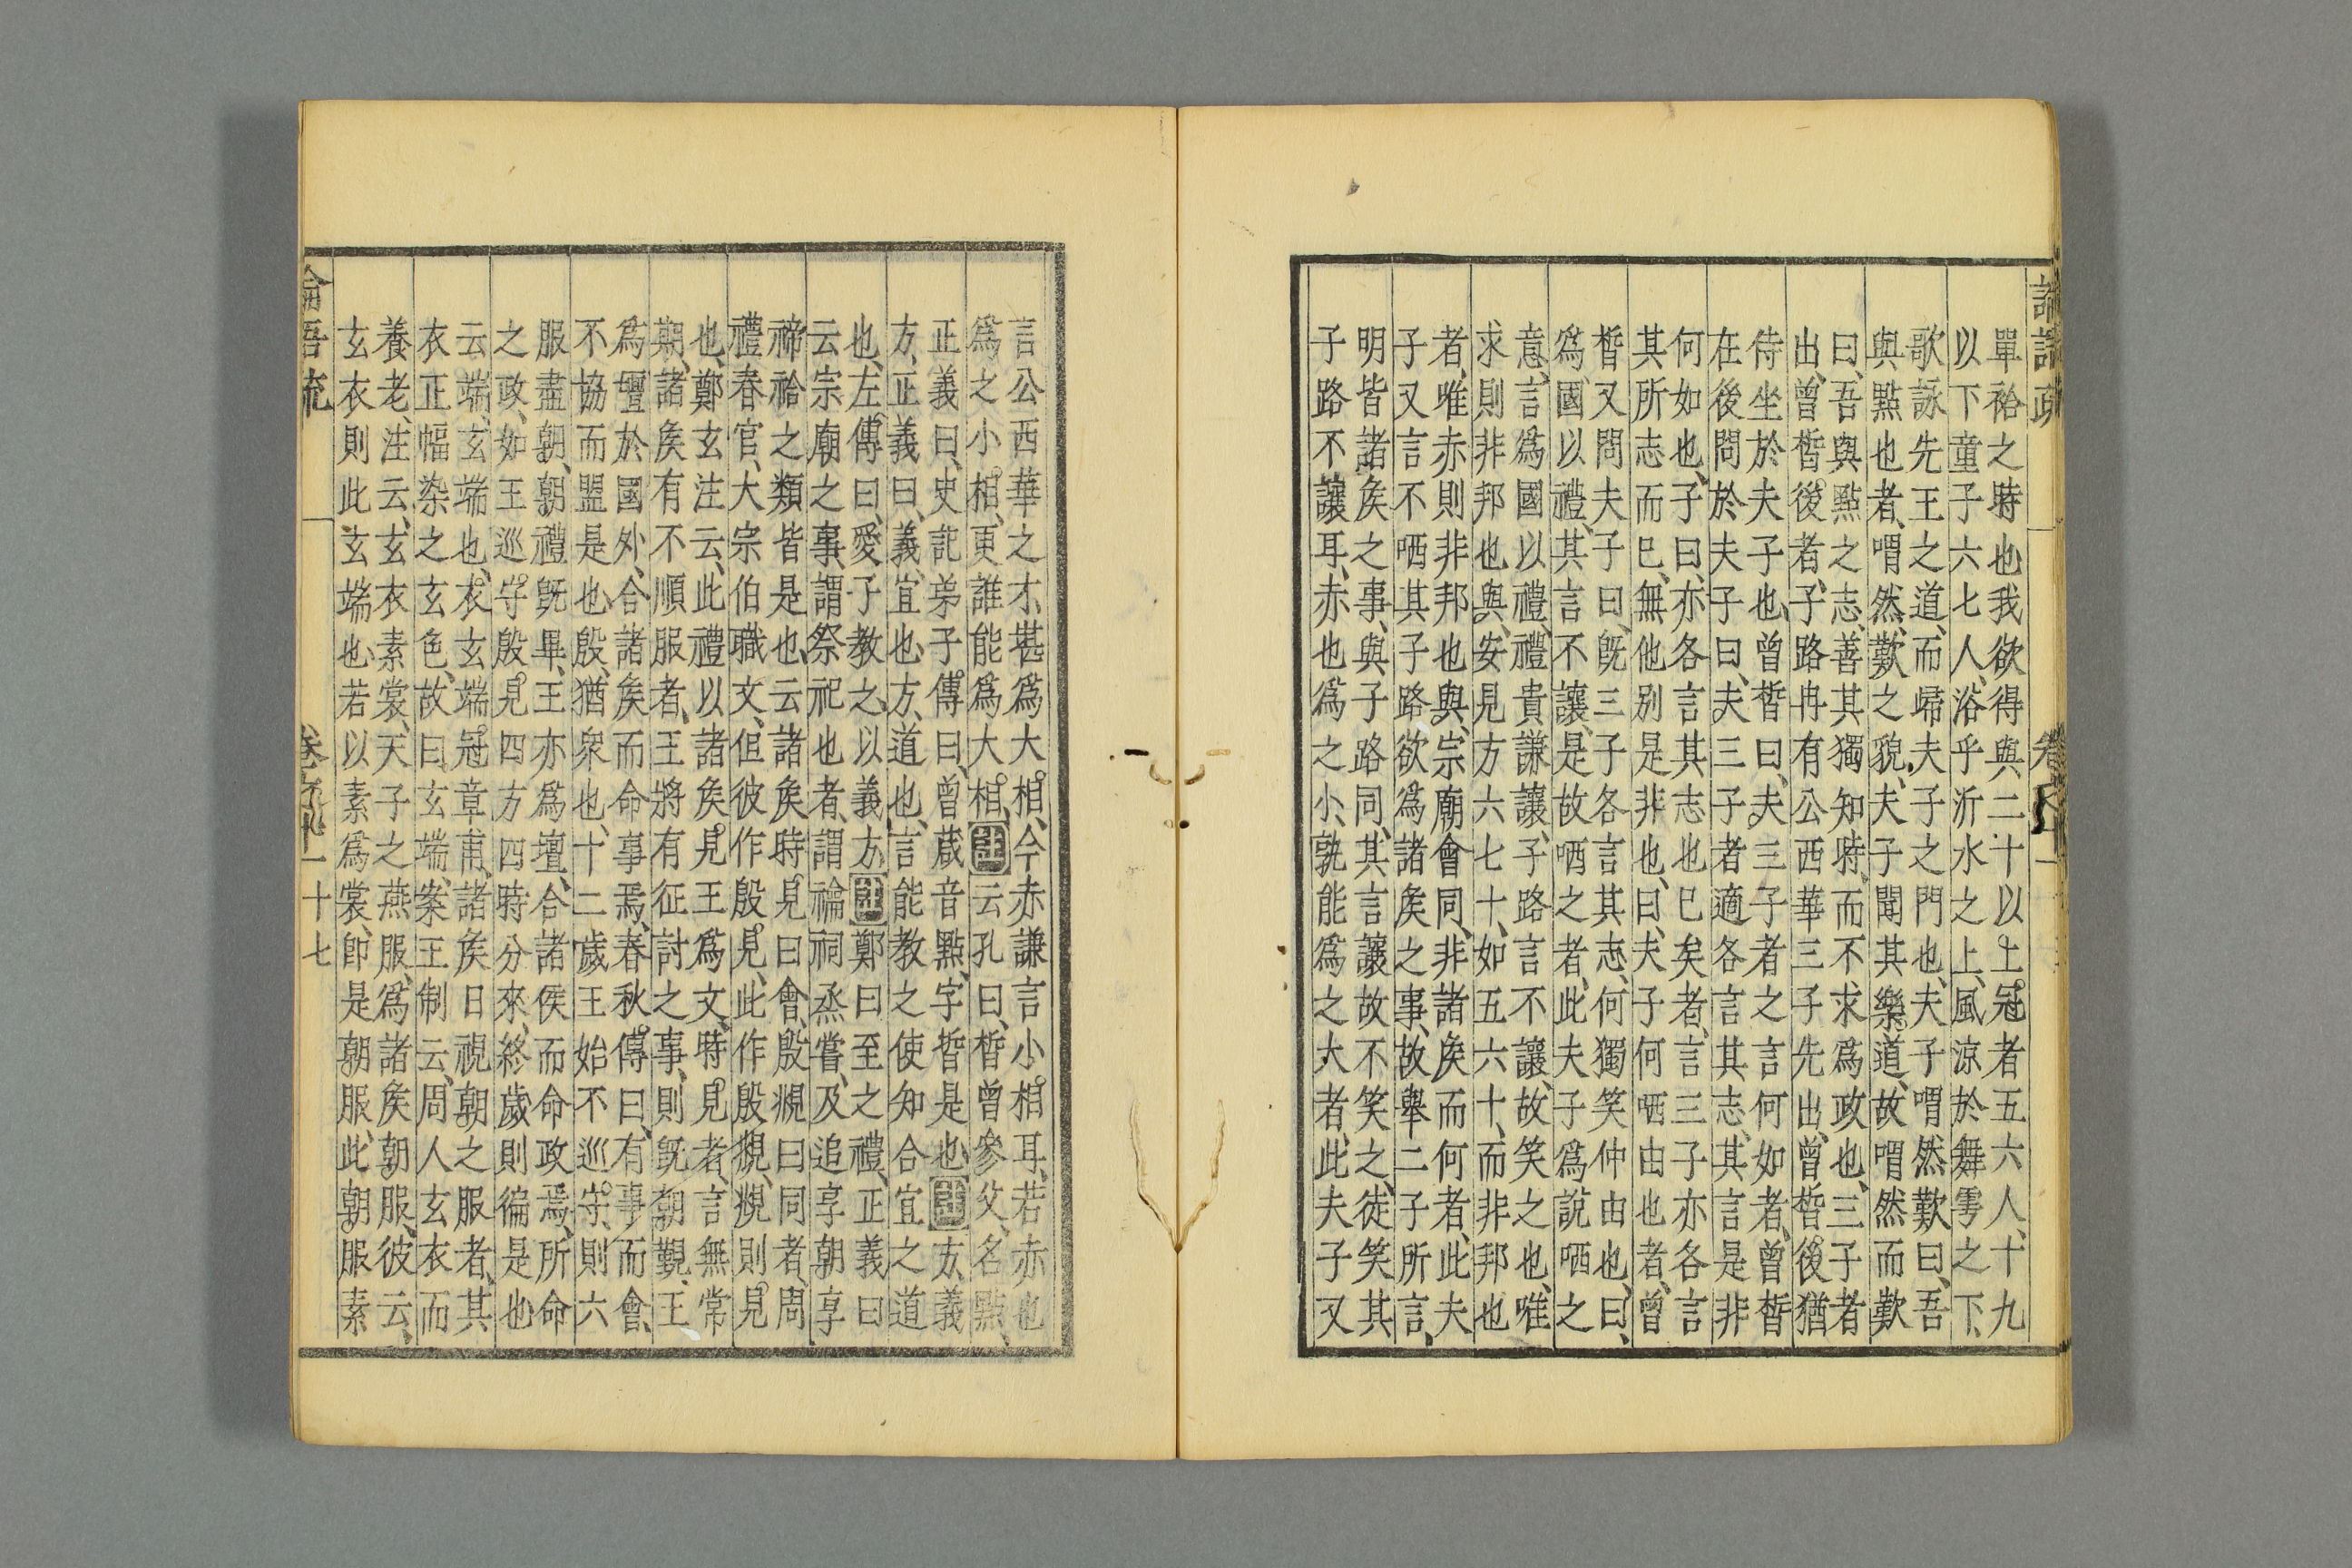 單袷之時也我欲得與二十以上冠者五六人、十九
以下童子六七人、浴乎沂水之上、風涼於舞雩之下、
歌詠先王之道、而歸夫子之門也、夫子喟然歎曰、吾
與點也者、喟然、歎之貌、夫子聞其樂道、故喟然而歎
曰、吾與點之志、善其獨知時、而不求爲政也、三子者
出、曾晳後者、子路冉有公西華三子先出、曾晳後猶
侍坐於夫子也、曾晳曰、夫三子者之言何如者、曾晳
在後問於夫子曰、夫三子者適各言其志、其言是非
何如也、子曰、亦各言其志也已矣者、言三子亦各言
其所志而已、無他別是非也、曰、夫子何哂由也者、曾
晳又問夫子曰、既三子各言其志、何獨笑仲由也、曰、
爲國以禮、其言不讓、是故哂之者、此夫子爲說哂之
意、言爲國以禮、禮貴謙讓、子路言不讓、故笑之也、唯
求則非邦也與、安見方六七十、如五六十、而非邦也
者、唯赤則非邦也與、宗廟會同、非諸矦而何者、此夫
子又言不哂其子路欲爲諸矦之事、故舉二子所言、
明皆諸矦之事、與子路同、其言讓故不笑之、徒笑其
子路不讓耳、赤也爲之小、孰能爲之大者、此夫子又
言公西華之才、堪爲大相、今赤謙言小相耳、若赤也
爲之小相、更誰能爲大相、註云孔曰、晳曾參父、名點、
正義曰、史記弟子傳曰、曾蒧音點、字晳是也、註方、義
方、正義曰、義、宜也、方、道也、言能教之使知合宜之道
也、左傳曰、愛子教之、以義方、註鄭曰至之禮、正義曰
云宗廟之事、謂祭祀也者、謂禴祠烝嘗、及追享朝享
禘祫之類皆是也、云諸矦時見曰會、殷覜曰同者、周
禮春官、大宗伯職文、但彼作殷見、此作殷覜、覜則見
也、鄭玄注云、此禮以諸矦見王爲文、時見者、言無常
期、諸矦有不順服者、王將有征討之事、則既朝覲、王
爲壇於國外、合諸矦而命事焉、春秋傳曰、有事而會、
不協而盟是也、殷、猶衆也、十二歲王始不巡守、則六
服盡朝、朝禮既畢、王亦爲壇、合諸侯而命政焉、所命
之政、如王巡守、殷見四方四時分來、終歲則徧是也
云端、玄端也、衣玄端冠章甫、諸矦日視朝之服者、其
衣正幅染之玄色、故曰玄端、案王制云、周人玄衣而
養老、注云、玄衣素裳、天子之燕服、爲諸矦朝服、彼云、
玄衣則此玄端也、若以素爲裳、卽是朝服、此朝服素
十七